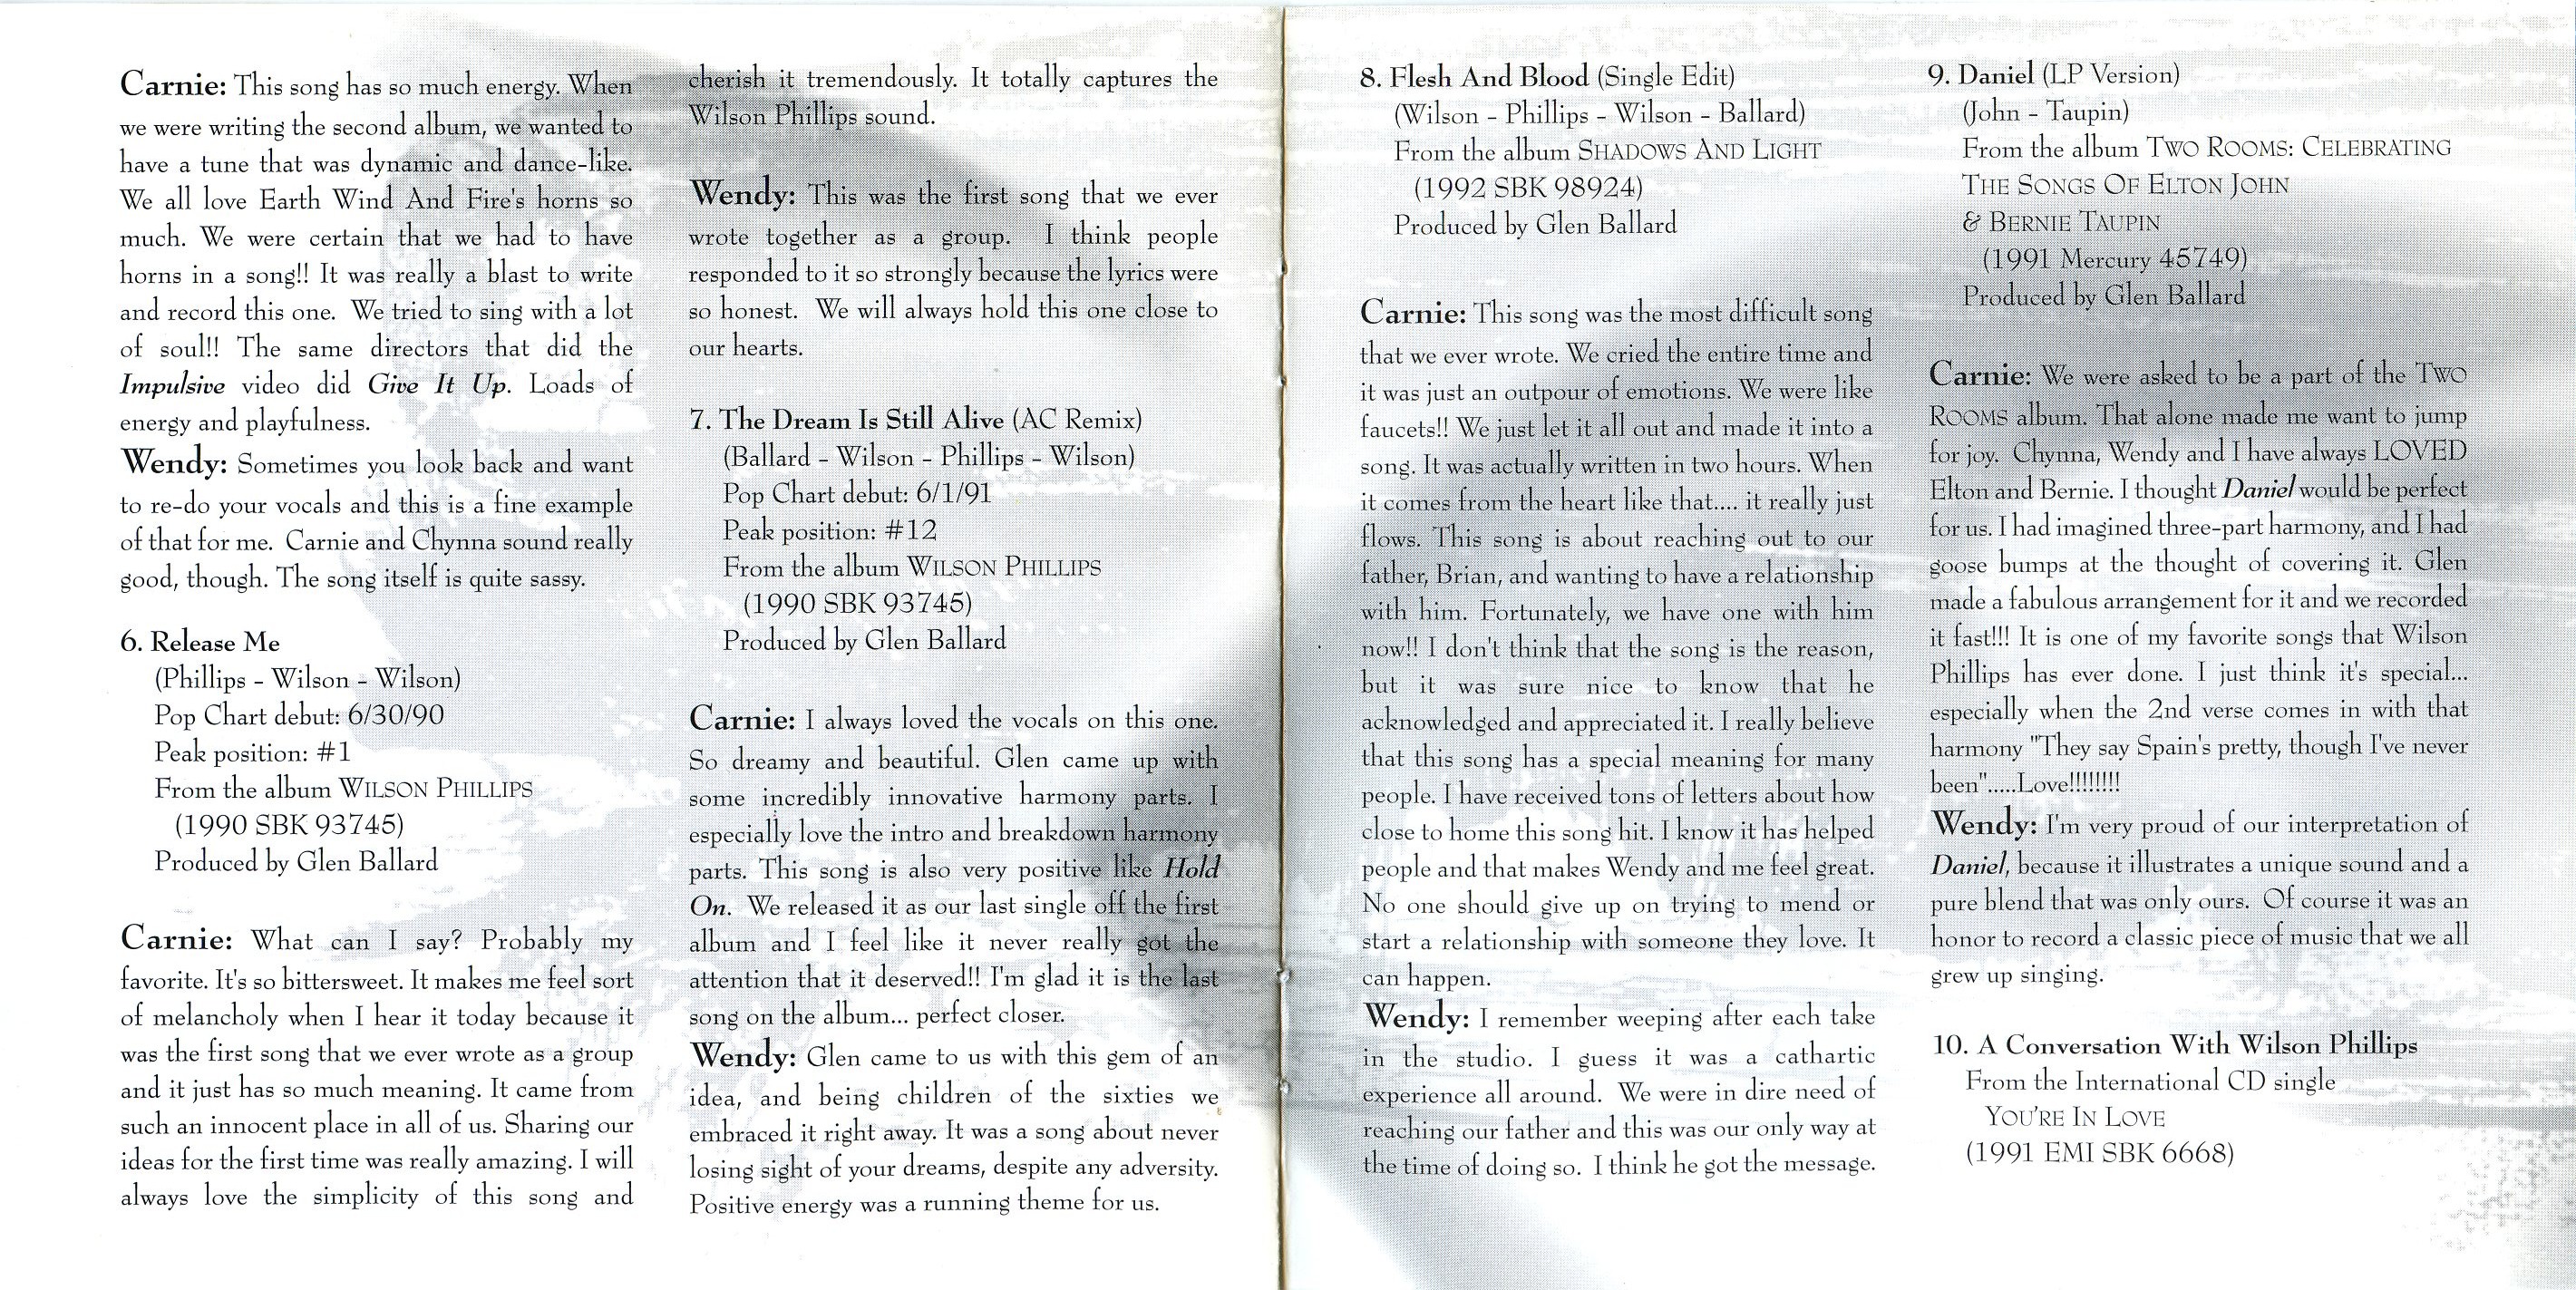 Carnie: This song has so much energy. When
we were writing the second album, we wanted to
have a tune that was dynamic and dance-like.
We all love Earth Wind And Fire's horns so
much. We were certain that we had to have
horns in a song!! It was really a blast to write
and record this one. We tried to sing with a lot
of soul!! The same directors that did the
Impulsive video did Give It Up. Loads of
energy and playfulness.
Wendy: Sometimes you look back and want
to re-do your vocals and this is a fine example
of that for me. Carnie and Chynna sound really
good, though. The song itself is quite sassy.
6. Release Me
(Phillips - Wilson - Wilson)
Pop Chart debut: 6/30/90
Peak position: #1
From the album WILSON PHILLIPS
(1990 SBK 93745)
Produced by Glen Ballard
Carnie: What can I say? Probably my
favorite. It's so bittersweet. It makes me feel sort
of melancholy when I hear it today because it
was the first song that we ever wrote as a group
and it just has so much meaning. It came from
such an innocent place in all of us. Sharing our
ideas for the first time was really amazing. I will
always love the simplicity of this song and
cherish it tremendously. It totally captures the
Wilson Phillips sound.
Wendy: This was the first song that we ever
wrote together as a group. I think people
responded to it so strongly because the lyrics were
so honest. We will always hold this one close to
our hearts.
7. The Dream Is Still Alive (AC Remix)
(Ballard - Wilson - Phillips - Wilson)
Pop Chart debut: 6/1/91
Peak position: #12
From the album WILSON PHILLIPS
(1990 SBK 93745)
Produced by Glen Ballard
Carnie: I always loved the vocals on this one.
So dreamy and beautiful. Glen came up with
some incredibly innovative harmony parts. I
especially love the intro and breakdown harmony
parts. This song is also very positive like Hold
On. We released it as our last single off the first
album and I feel like it never really got the
attention that it deserved!! I'm glad it is the last
song on the album... perfect closer.
Wendy: Glen came to us with this gem of an
idea, and being children of the sixties we
embraced it right away. It was a song about never
losing sight of your dreams, despite any adversity.
Positive energy was a running theme for us.
8. Flesh And Blood (Single Edit)
(Wilson - Phillips - Wilson - Ballard)
From the album SHADOWS AND LIGHT
(1992 SBK 98924)
Produced by Glen Ballard
Carnie: This song was the most difficult song
that we ever wrote. We cried the entire time and
it was just an outpour of emotions. We were like
faucets!! We just let it all out and made it into a
song. It was actually written in two hours. When
it comes from the heart like that.... it really just
flows. This song is about reaching out to our
father, Brian, and wanting to have a relationship
with him. Fortunately, we have one with him
now!! I don't think that the song is the reason,
but it was sure nice to know that he
acknowledged and appreciated it. I really believe
that this song has a special meaning for many
people. I have received tons of letters about how
close to home this song hit. I know it has helped
people and that makes Wendy and me feel great.
No one should give up on trying to mend or
start a relationship with someone they love. It
can happen.
Wendy: I remember weeping after each take
in the studio. I guess it was a cathartic
experience all around. We were in dire need of
reaching our father and this was our only way at
the time of doing so. I think he got the message.
9. Daniel (LP Version)
(John - Taupin)
From the album TWO ROOMS: CELEBRATING
THE SONGS OF ELTON JOHN
& BERNIE TAUPIN
(1991 Mercury 45749)
Produced by Glen Ballard
Carnie: We were asked to be a part of the TWO
ROOMS album. That alone made me want to jump
for joy. Chynna, Wendy and I have always LOVED
Elton and Bernie. I thought Daniel would be perfect
for us. I had imagined three-part harmony, and I had
goose bumps at the thought of covering it. Glen
made a fabulous arrangement for it and we recorded
it fast!!! It is one of my favorite songs that Wilson
Phillips has ever done. I just think it's special...
especially when the 2nd verse comes in with that
harmony "They say Spain's pretty, though I've never
been".....Love!!!!!!!!
Wendy: I'm very proud of our interpretation of
Daniel, because it illustrates a unique sound and a
pure blend that was only ours. Of course it was an
honor to record a classic piece of music that we all
grew up singing.
10. A Conversation With Wilson Phillips
From the International CD single
YOU'RE IN LOVE
(1991 EMI SBK 6668)